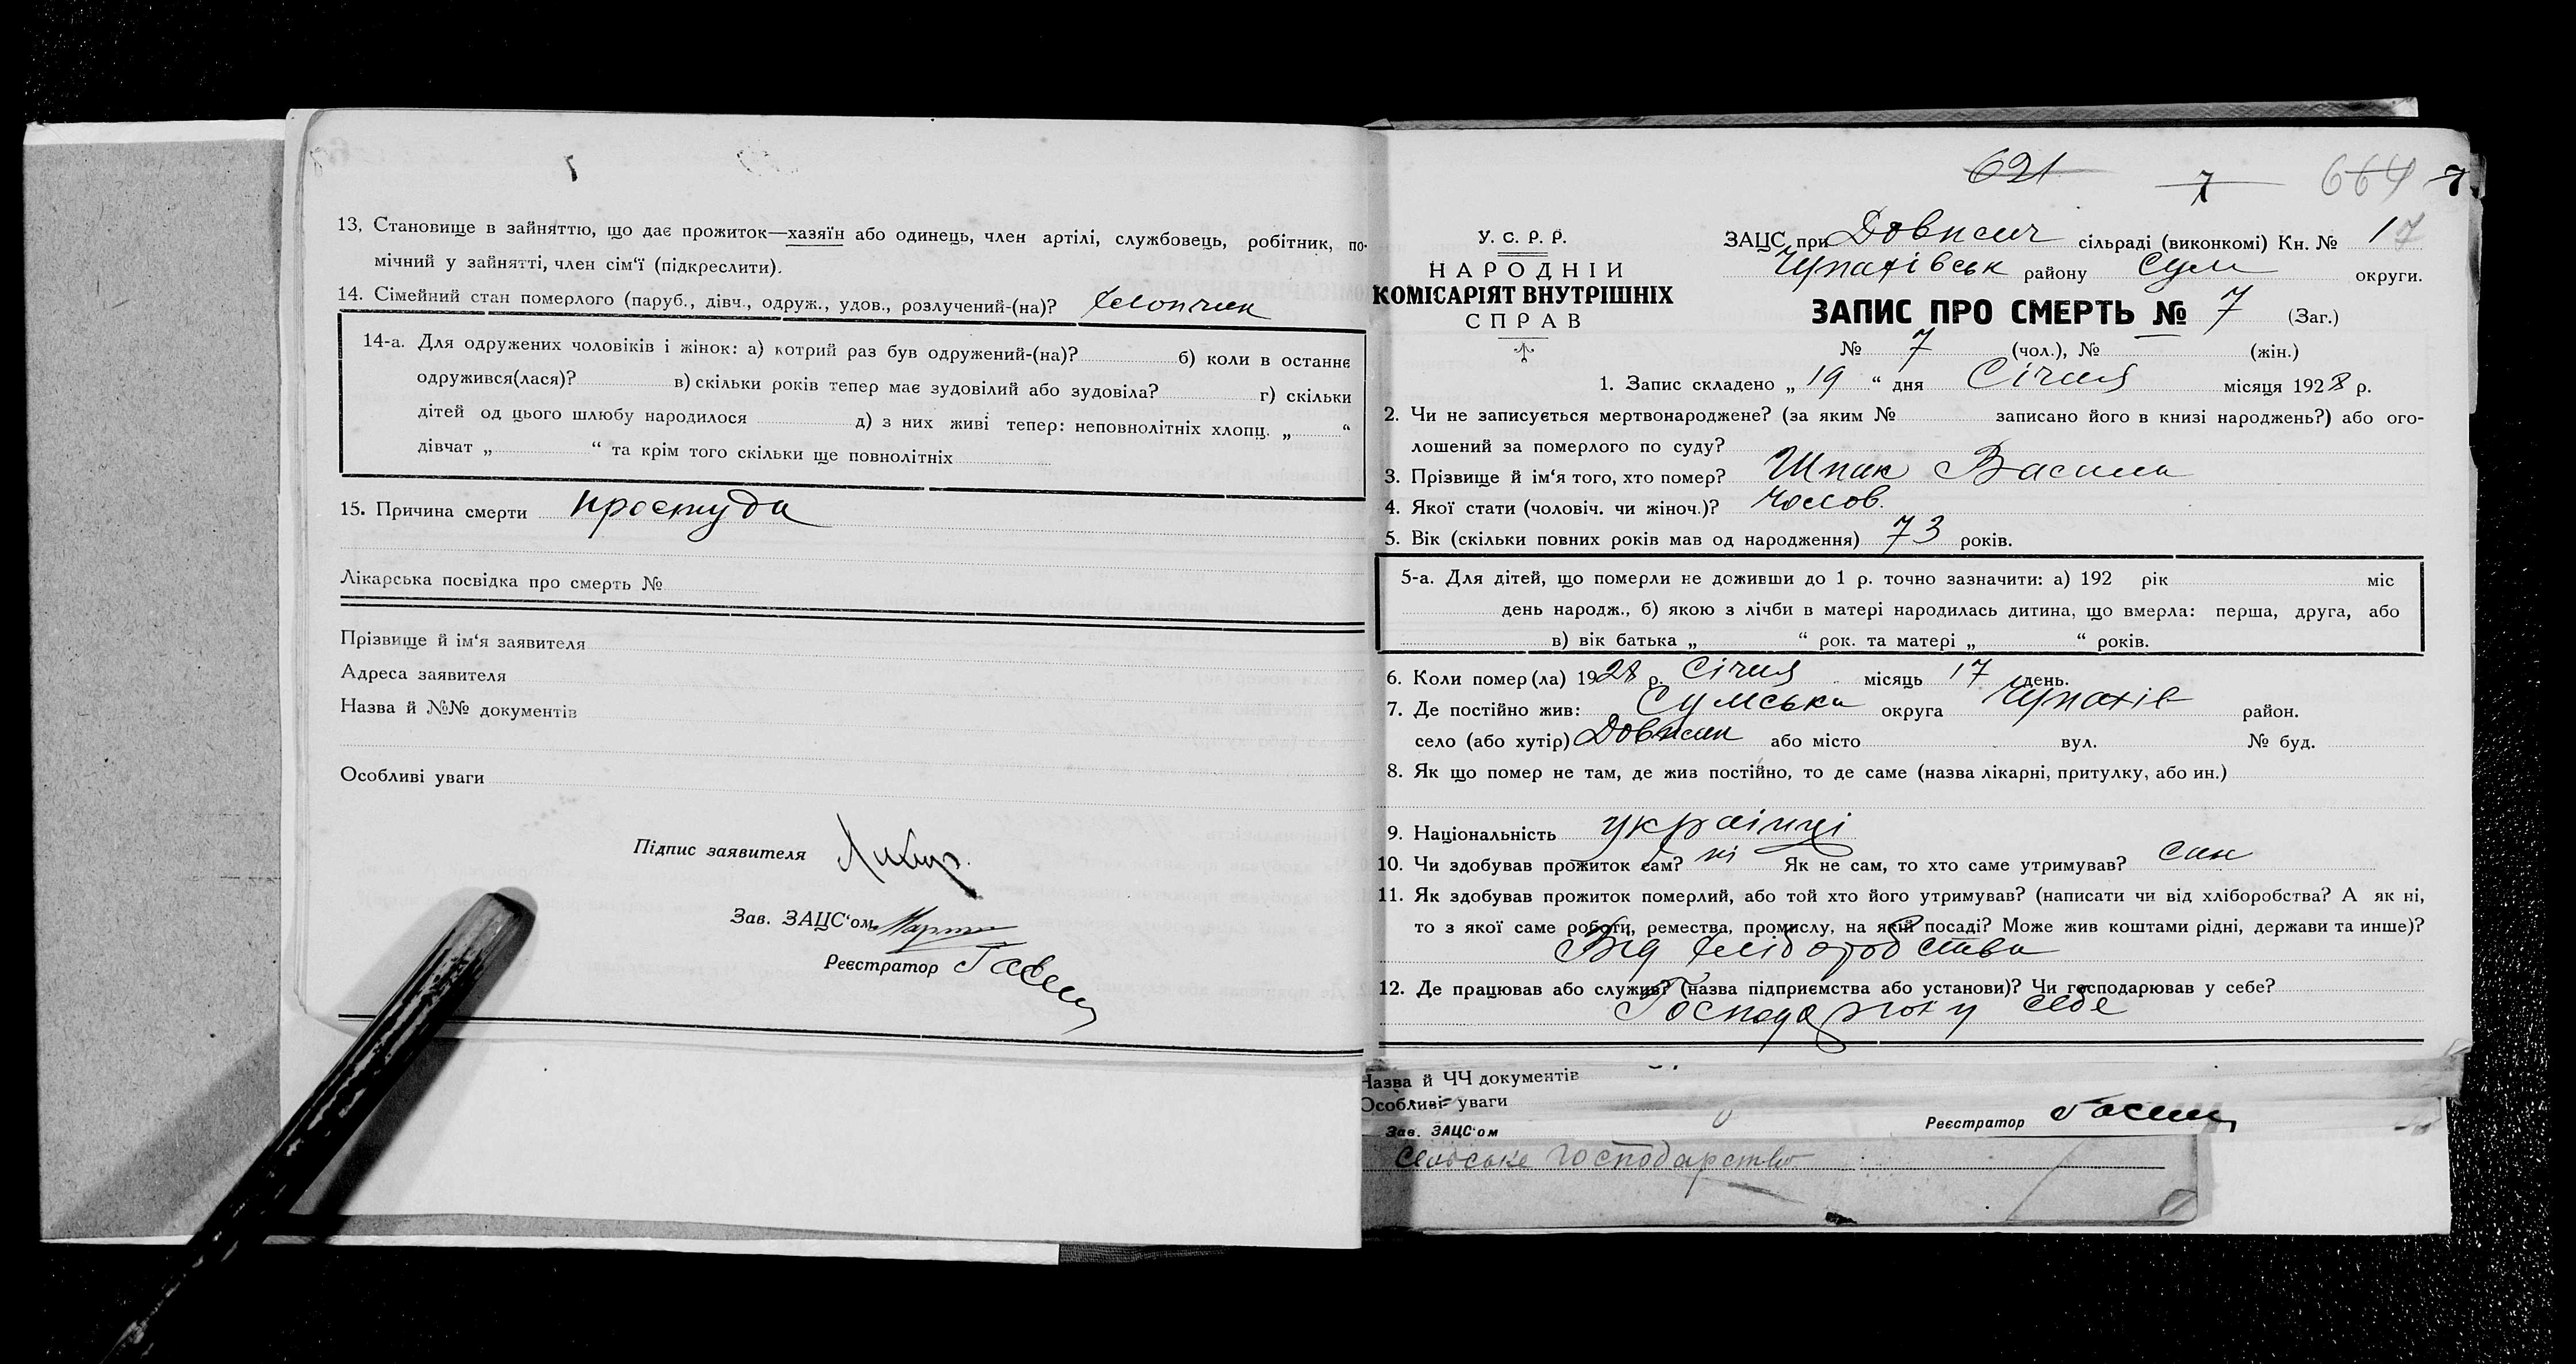 13. Становище в зайняттю, що дає прожиток—хазяїн або одинець, член артілі, службовець, робітник, по-
мічний у зайнятті, член сім'ї (підкреслити).
14. Сімейний стан померлого (паруб., дівч., одруж., удов., розлучений-(на)? хлопчик
14-а. Для одружених чоловіків і жінок: а) котрий раз був одружений-(на)? б) коли в останнє
одружився(лася)? в) скільки років тепер має зудовілий або зудовіла? г) скільки
дітей од цього шлюбу народилося д) з них живі тепер: неповнолітніх хлопц. „ “
дівчат „ “ та крім того скільки ще повнолітніх
15. Причина смерти простуда
Лікарська посвідка про смерть №
Прізвище й ім'я заявителя
Адреса заявителя
Назва й №№ документів
Особливі уваги
Підпис заявителя
Зав. ЗАЦС'ом
Реєстратор
621 7 664 7
У. С. Р. Р.
НАРОДНІЙ
КОМІСАРІЯТ ВНУТРІШНІХ
СПРАВ
ЗАЦС при сільраді (виконкомі) Кн. № 17
Чупахівськ району Сум округи.
ЗАПИС ПРО СМЕРТЬ № 7 (Заг.)
№ 7 (чол.), № (жін.)
1. Запис складено „ 19 “ дня Січня місяця 1928 р.
2. Чи не записується мертвонароджене? (за яким № записано його в книзі народжень?) або ого-
лошений за померлого по суду?
3. Прізвище й ім'я того, хто помер? Шпак Василь
4. Якої стати (чоловіч. чи жіноч.)? Чолов.
5. Вік (скільки повних років мав од народження) 73 років.
5-а. Для дітей, що померли не доживши до 1 р. точно зазначити: а) 192 рік міс
день народж., б) якою з лічби в матері народилась дитина, що вмерла: перша, друга, або
в) вік батька „ “ рок. та матері „ “ років.
6. Коли помер(ла) 1928 р. Січня місяць 17 день.
7. Де постійно жив: Сумська округа Чупахів район.
село (або хутір) або місто вул. № буд.
8. Як що помер не там, де жив постійно, то де саме (назва лікарні, притулку, або ин.)
9. Національність українці
10. Чи здобував прожиток сам? ні Як не сам, то хто саме утримував? син
11. Як здобував прожиток померлий, або той хто його утримував? (написати чи від хліборобства? А як ні,
то з якої саме роботи, ремества, промислу, на якій посаді? Може жив коштами рідні, держави та инше)?
Від хліборобства
12. Де працював або служив? (назва підприємства або установи)? Чи господарював у себе?
у себе
Назва й ЧЧ документів
Особливі уваги
Зав. ЗАЦС'ом Реєстратор
Сельське господарство